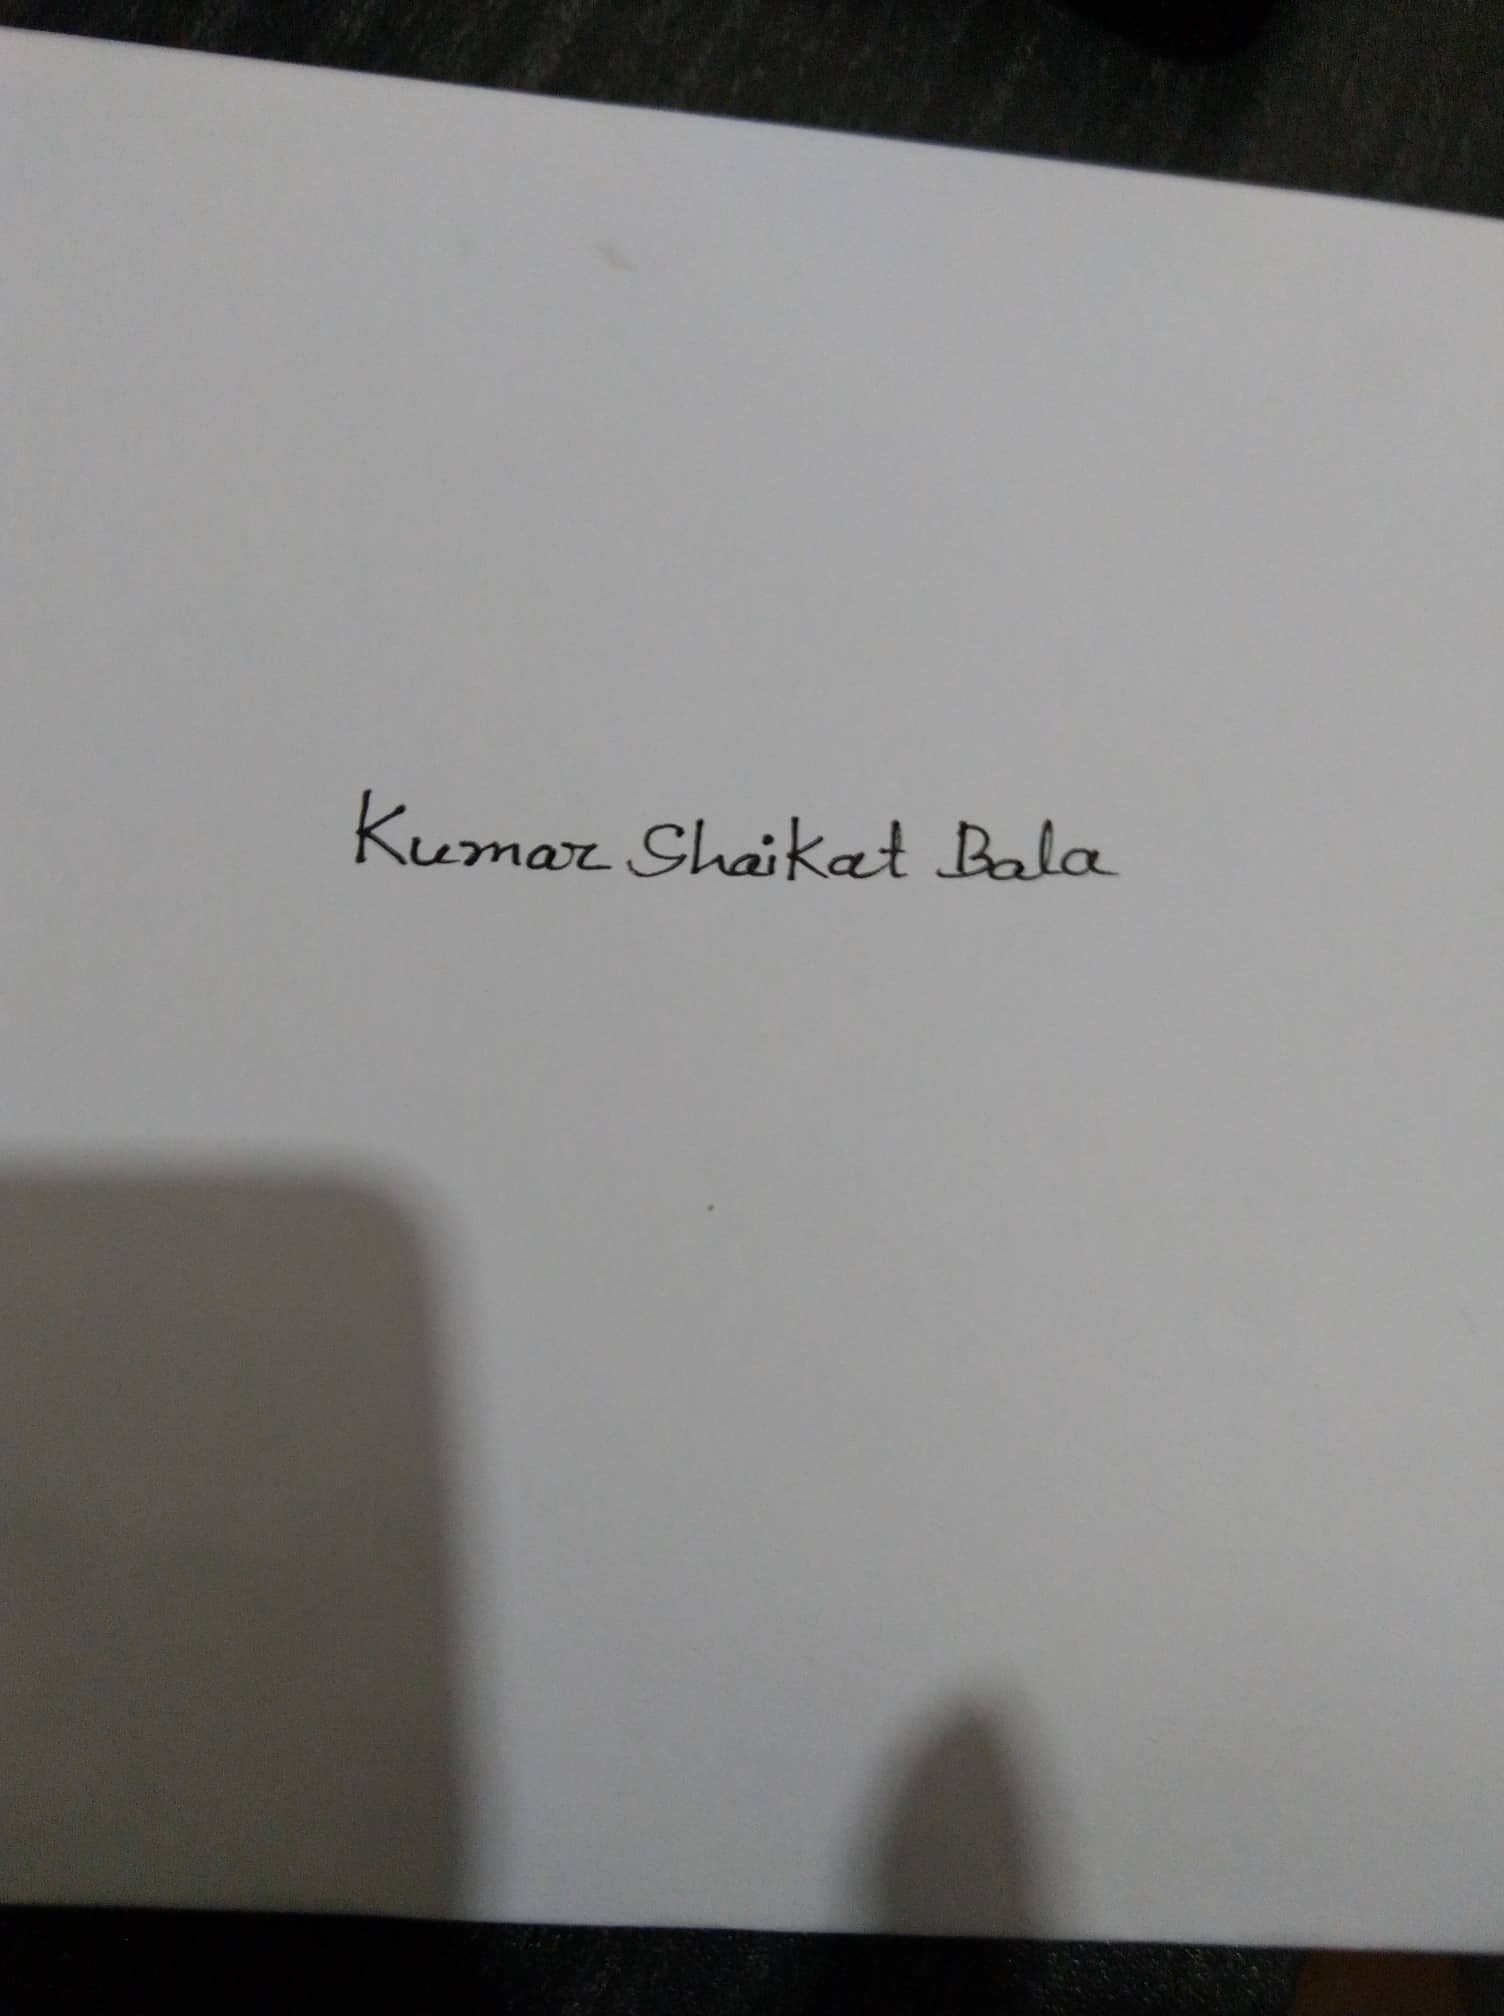 Kumar Shaikat Bala